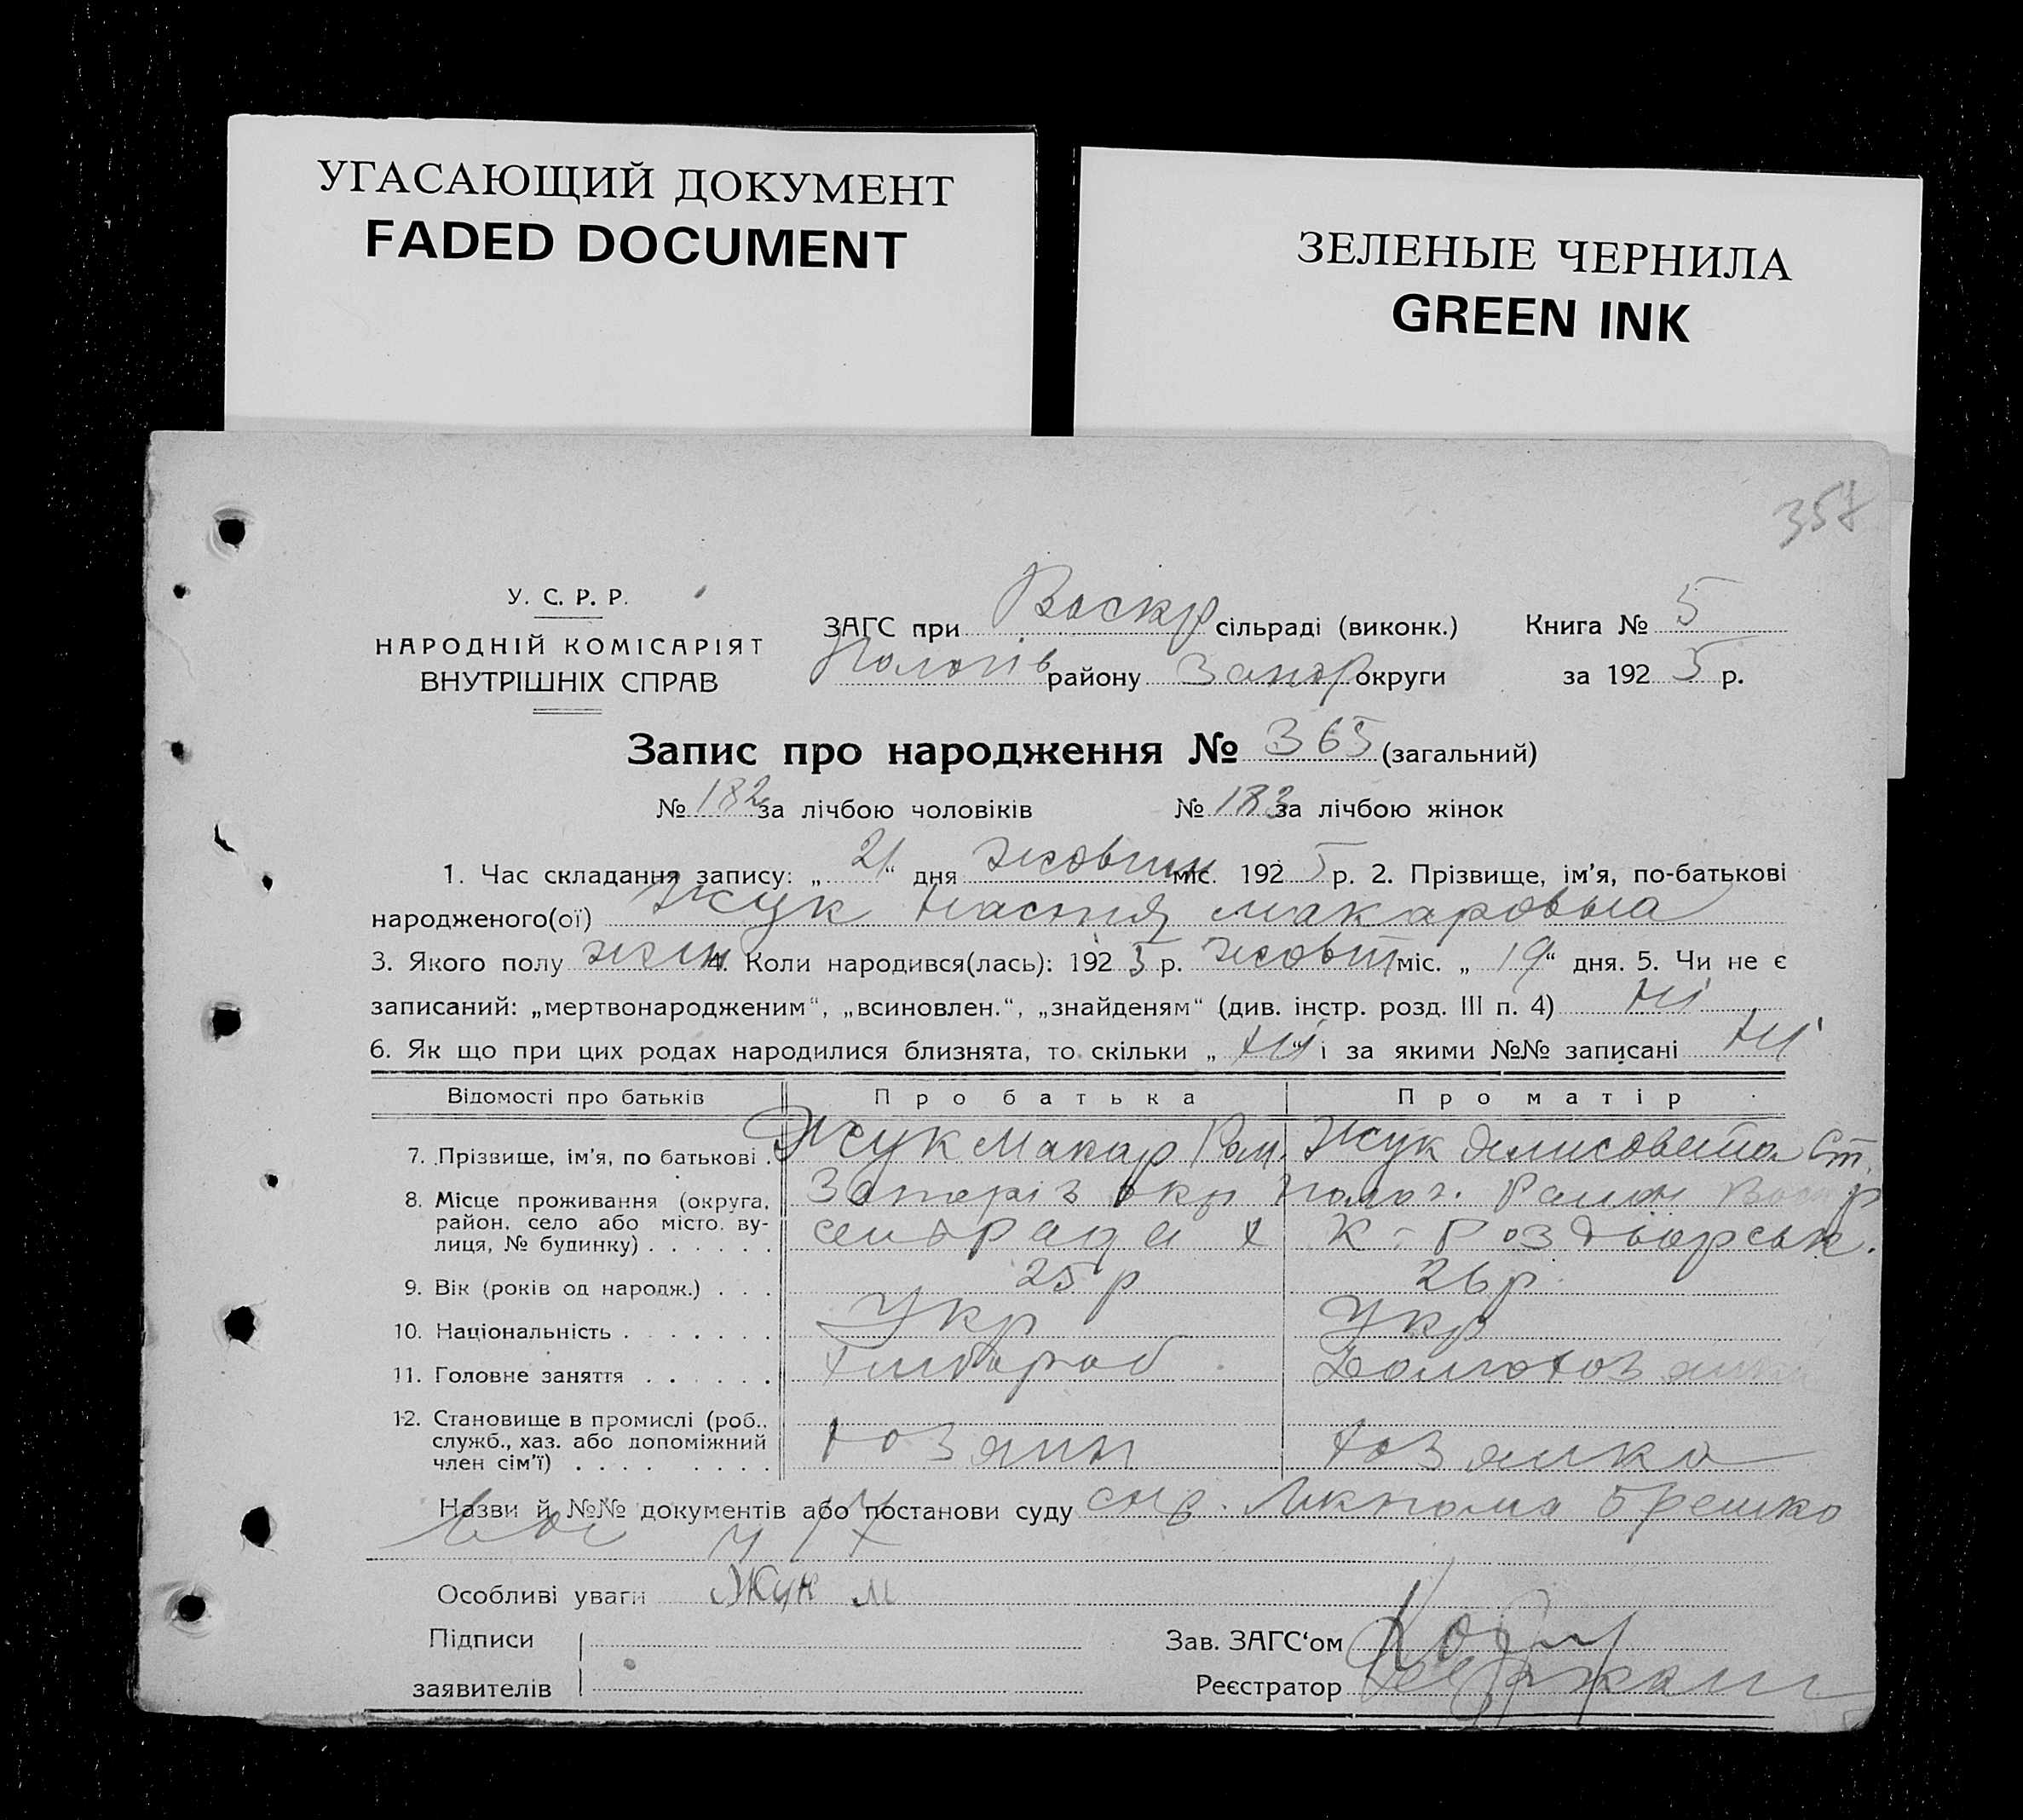 УГАСАЮЩИЙ ДОКУМЕНТ
FADED DOCUMENT
ЗЕЛЕНЫЕ ЧЕРНИЛА
GREEN INK
358
У. С. Р. Р.
НАРОДНІЙ КОМІСАРІЯТ
ВНУТРІШНІХ СПРАВ
ЗАГС при Воскр сільраді (виконк.)
Пологів району Запор округи
Книга № 5
за 1925 р.
Запис про народження № 365 (загальний)
№ 182 за лічбою чоловіків № 183 за лічбою жінок
1. Час складання запису: „21“ дня жовтн міс. 1925 р. 2. Прізвище, ім'я, по-батькові
народженого(ої) Жук Настя Макаровна
3. Якого полу жін 4. Коли народився(лась): 1925 р. жовт міс. „19“ дня. 5. Чи не є
записаний: „мертвонародженим“, „всиновлен.“, „знайденям“ (див. інстр. розд. III п. 4) Ні
6. Як що при цих родах народилися близнята, то скільки „ні“ і за якими №№ записані Ні
Відомості про батьків Про батька Про матір
7. Прізвище, ім'я, по батькові . Жук Макар Ром. Жук Єлисовета Ст.
8. Місце проживання (округа, район, село або місто, вулиця, № будинку) . . . . . . Запоріз окр Полог. Район
сельрада х К-Роздорськ.
9. Вік (років од народж.) . . . 25 р 26 р.
10. Національність . . . . . . . Укр Укр
11. Головне заняття . . . . . . Хлибороб
12. Становище в промислі (роб., служб., хаз. або допоміжний член сім'ї) . . . . . . . . Хозяин Хозяика
Назви й №№ документів або постанови суду
Особливі уваги Жук М
Підписи
заявителів
Зав. ЗАГС'ом
Реєстратор